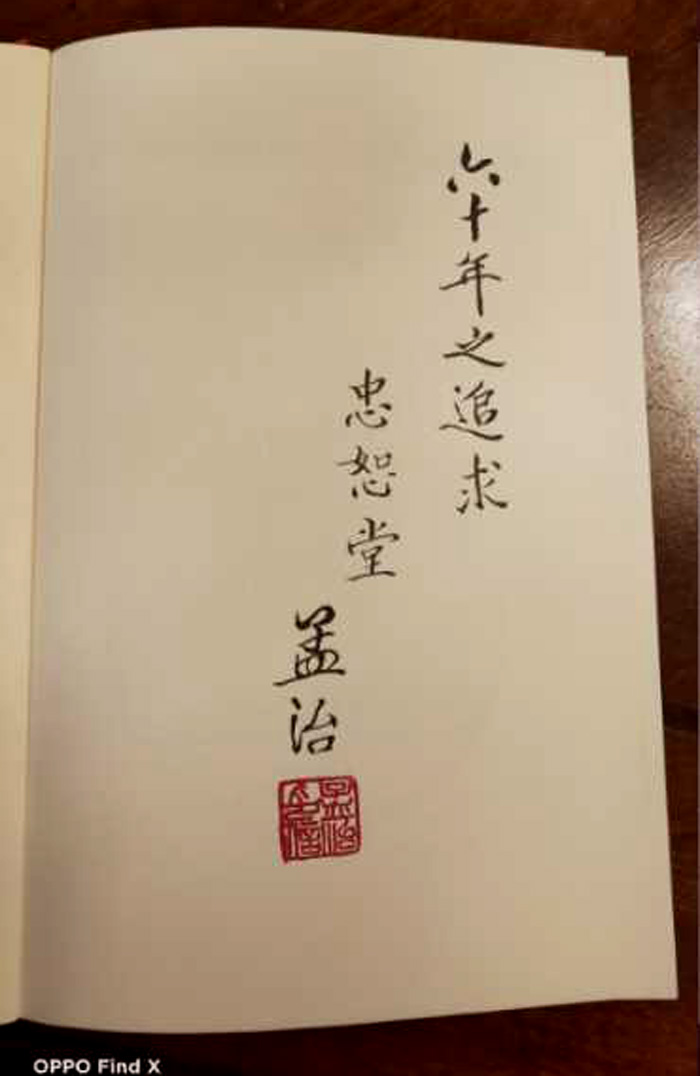 六十年之追求
忠恕堂
孟治
OPPO Find X